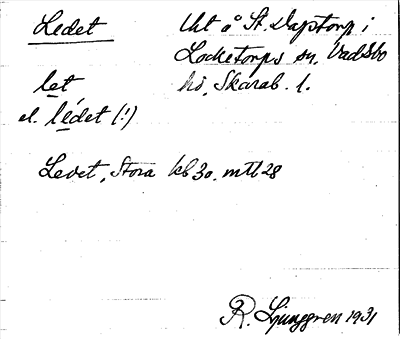 Ledet Uht å St. Daptorp i
Locketorps sn, Vadsbo
let hd, Skarab. l.
el. lédet (!)
Ledet, Stora kb 30. mtl 28
R. Ljunggren 1931